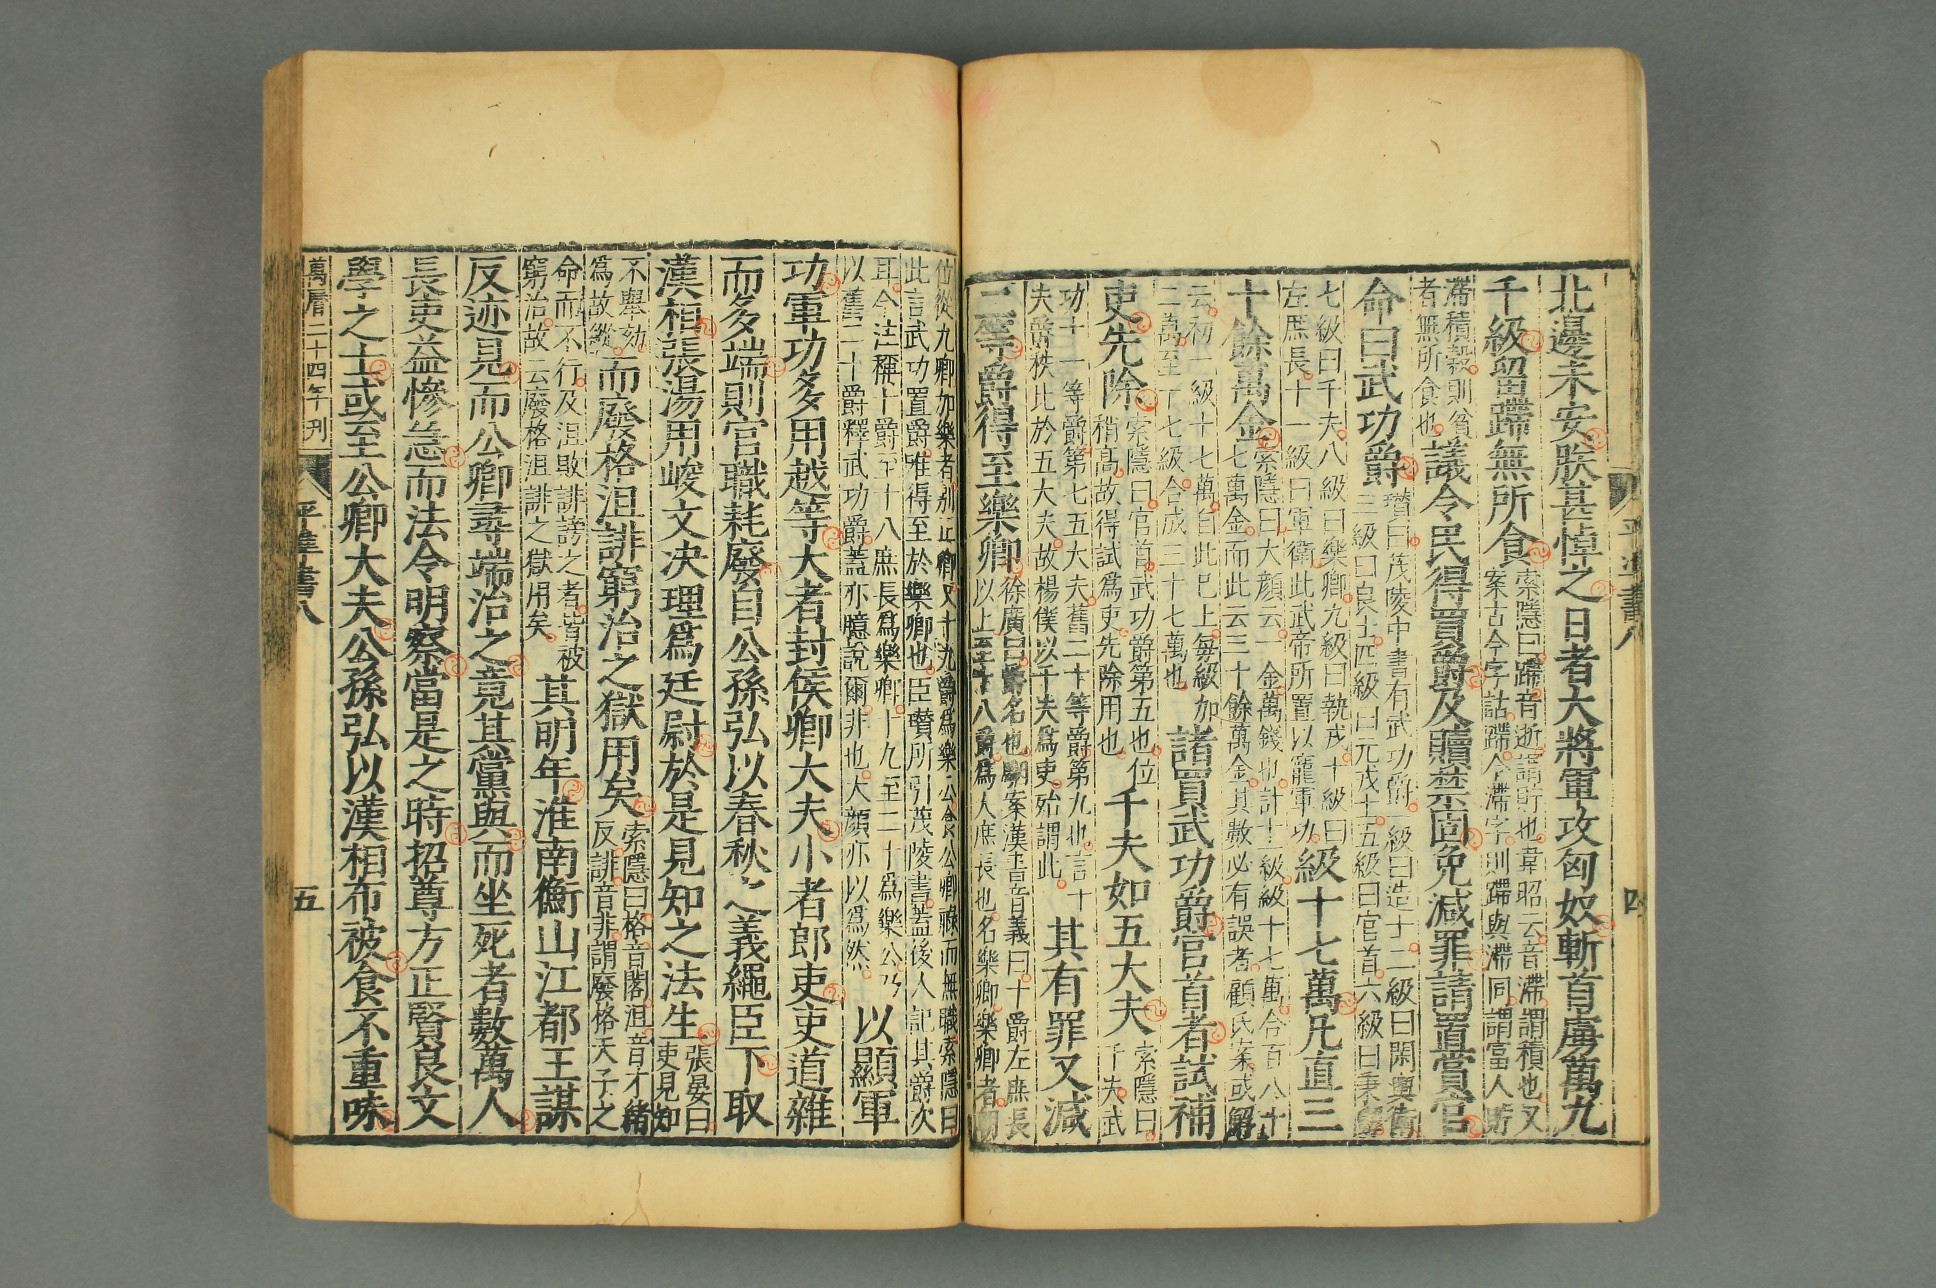 北邊未安朕甚悼之日者大將軍攻匈奴斬首虜萬九
千級留蹛無所食索隱曰蹛音逝謂貯也韋昭云音滯謂積也又案古今字詁蹛今滯字則蹛與滯同謂富人貯
滯積穀則貧者無所食也議令民得買爵及贖禁固免減罪請置賞官
命曰武功爵瓚曰茂陵中書有武功爵一級曰造士二級曰閑輿衛三級曰良士四級曰元戎士五級曰官首六級曰秉鐸
七級曰千夫八級曰樂卿九級曰執戎十級曰左庶長十一級曰軍衛此武帝所置以寵軍功級十七萬凡直三
十餘萬金索隱曰大顏云一金萬錢也計十一級級十七萬合百八十七萬金而此云三十餘萬金其數必有誤者顧氏案或解
云初一級十七萬自此已上每級加二萬至十七級合成三十七萬也諸買武功爵官首者試補
吏先除索隱曰官首武功爵第五也位稍高故得試爲吏先除用也千夫如五大夫索隱曰千夫武
功十一等爵第七五大夫舊二十等爵第九也言千夫爵秩比於五大夫故楊僕以千夫爲吏殆謂此其有罪又減
二等爵得至樂卿徐廣曰爵名也駰案漢書音義曰十爵左庶長以上至十八爵爲大庶長也名樂卿樂卿者朝
位從九卿加樂者別正卿又十九爵爲樂公食公卿祿而無職索隱曰此言武功置爵惟得至於樂卿也臣瓚所引茂陵書蓋後人記其爵次
耳今注稱十爵至十八庶長爲樂卿十九至二十爲樂公乃以舊二十爵釋武功爵蓋亦臆說爾非也大顏亦以爲然以顯軍
功軍功多用越等大者封侯卿大夫小者郎吏吏道雜
而多端則官職耗廢自公孫弘以春秋之義繩臣下取
漢相張湯用峻文決理爲廷尉於是見知之法生張晏曰吏見知
不舉劾爲故縱而廢格沮誹窮治之獄用矣索隱曰格音閣沮音才緒反誹音非謂廢格天子之
命而不行及沮敗誹謗之者皆被窮治故云廢格沮誹之獄用矣其明年淮南衡山江都王謀
反迹見而公卿尋端治之竟其黨與而坐死者數萬人
長吏益慘急而法令明察當是之時招尊方正賢良文
學之士或至公卿大夫公孫弘以漢相布被食不重味
萬曆二十四年刊
平準書八
五